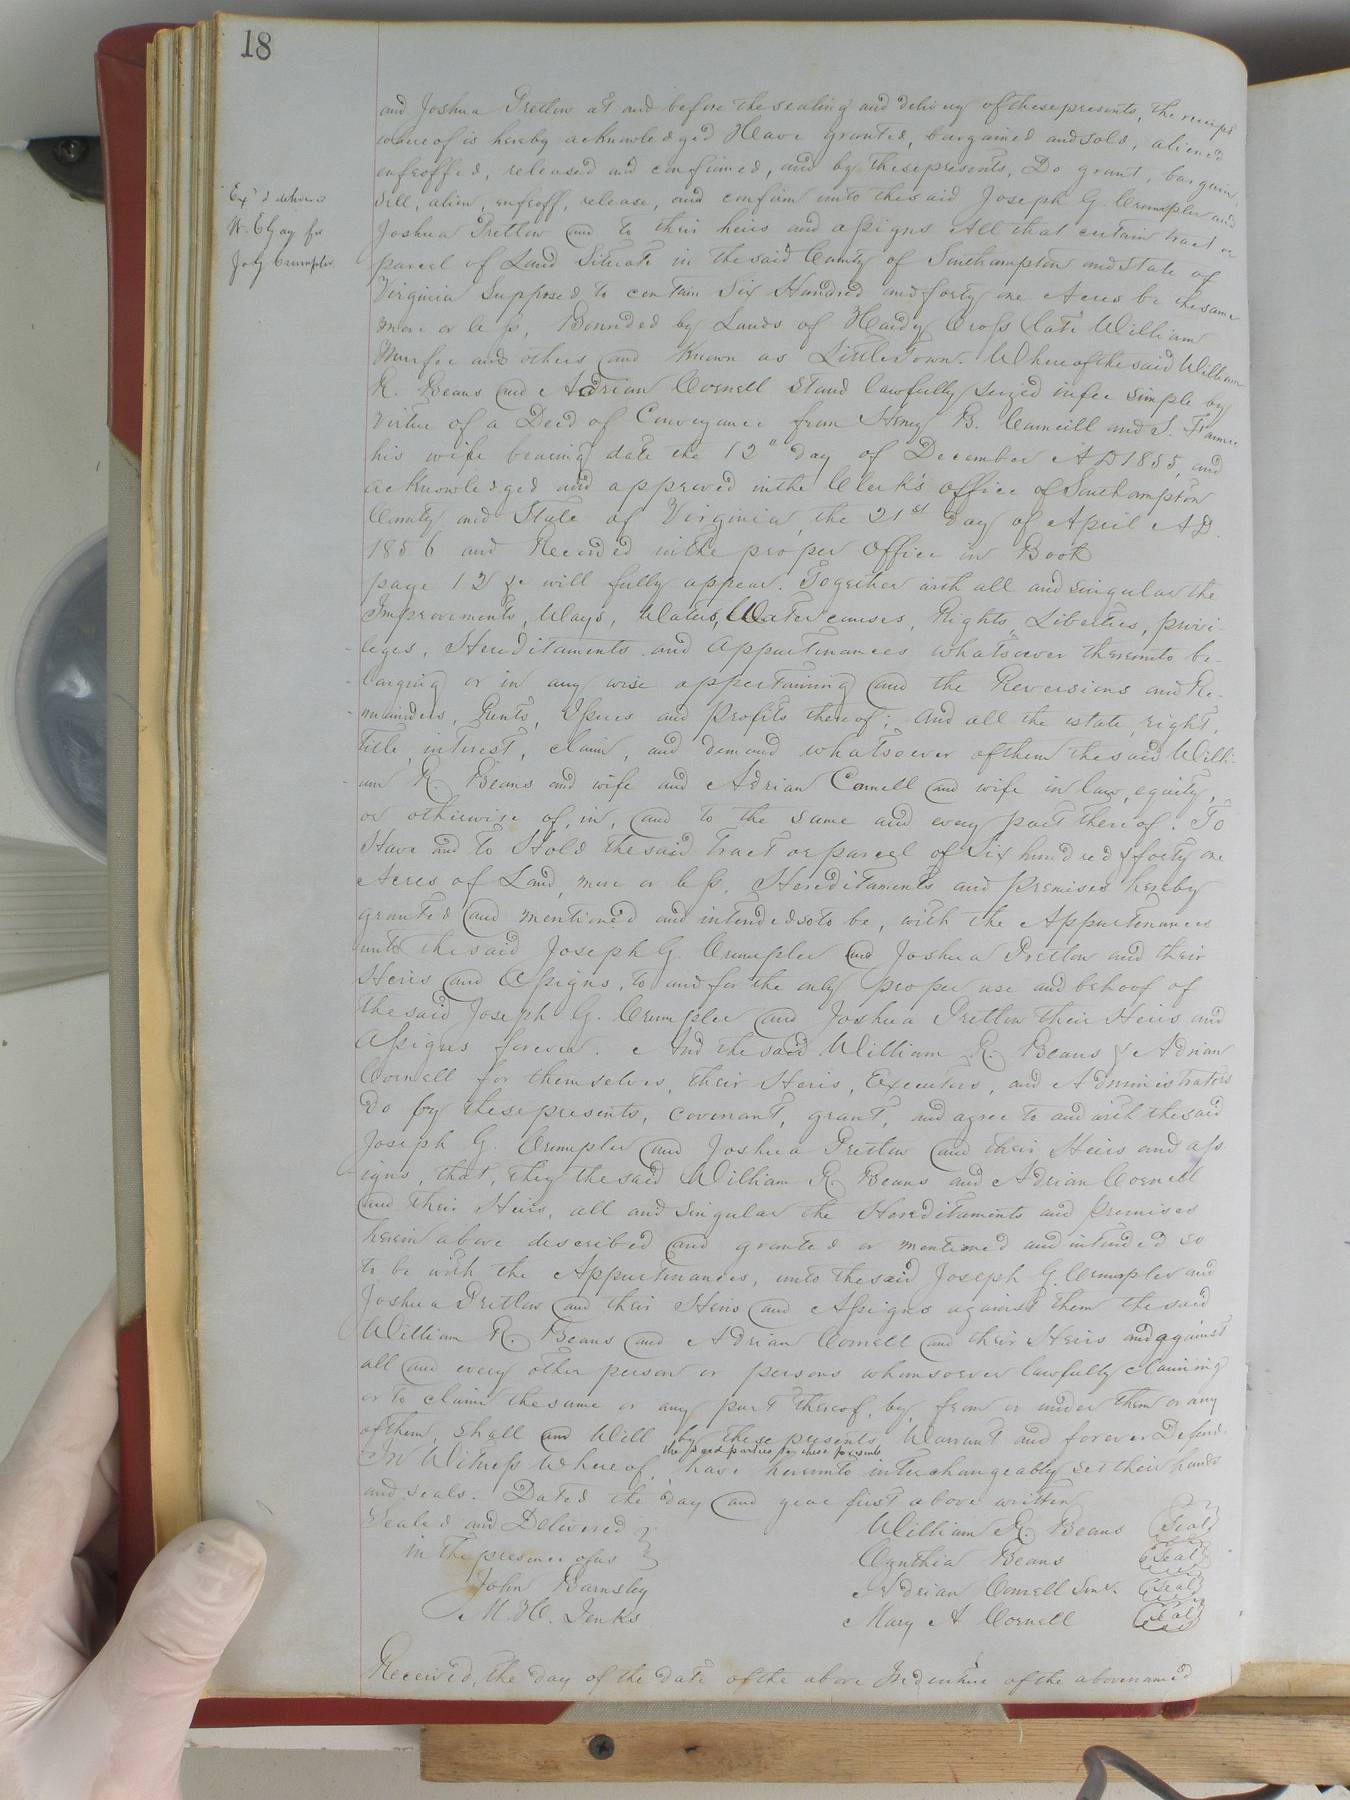 18
and Joshua Pretlow at and before the sealing and delivery of these presents, the receipt
whereof is hereby acknowledged Have granted, bargained and sold, aliened
enfeoffed, released and confirmed, and by these presents, Do grant, bargain,
Sell, alien, enfeoff, release, and confirm unto the said Joseph G. Crumpler and
Joshua Pretlow and to their heirs and assigns All that certain tract or
parcel of Land Situate in the said County of Southampton and State of
Virginia Supposed to contain Six Hundred and forty one Acres be the same
more or less, Bounded by Lands of Hardy Cross (late William
Murfee and others and Known as Littletown. Whereof the said William
R. Beans and Adrian Cornell Stand lawfully seized in fee simple by
virtue of a Deed of Conveyance from Henry B. Cauncill and S. Frances
his wife bearing date the 12" day of December AD 1855, and
acknowledged and approved in the Clerk's office of Southampton
County and State of Virginia, the 21st day of April AD.
1856 and Recorded in the proper Office in Book
page 12 &c will fully appear. Together with all and singular the
Improvements, Ways, Waters, Water courses, Rights, Liberties, privi-
leges, Hereditaments and Appurtenances whatsoever thereunto be-
longing or in any wise appertaining and the Reversions and Re-
mainders, Rents, Issues and Profits thereof; And all the estate, right,
title, interest, claim, and demand whatsoever of them the said Willi-
am R. Beans and wife and Adrian Cornell and wife in law, equity,
or otherwise of, in, and to the same and every part thereof. To
Have and to Hold the said tract or parcel of Six hundred & forty one
Acres of Land, more or less, Hereditaments and Premises hereby
granted and mentioned and intended so to be, with the Appurtenances
unto the said Joseph G. Crumpler and Joshua Pretlow and their
Heirs and Assigns, to and for the only proper use and behoof of
the said Joseph G. Crumpler and Joshua Pretlow their Heirs and
Assigns forever. And the said William R. Beans & Adrian
Cornell for themselves, their Heirs, Executors, and Administrators
do by these presents, covenant, grant, and agree to and with the said
Joseph G. Crumpler and Joshua Pretlow and their Heirs and ass
igns, that, they the said William R. Beans and Adrian Cornell
and their Heirs, all and Singular the Hereditaments and Premises
herein above described and granted or mentioned and intended so
to be with the Appurtenances, unto the said Joseph G. Crumpler and
Joshua Pretlow and their Heirs and Assigns against them the said
William R. Beans and Adrian Cornell and their Heirs and against
all and every other person or persons whomsoever lawfully claiming
or to claim the same or any part thereof, by, from or under them or any
of them, Shall and Will by these presents Warrant and forever Defend.
the said parties to these presents
In Witness Whereof, have hereunto interchangeably set their hands
and seals. Dated the day and year first above written
Sealed and Delivered
in the presence of us
John Barnsley
M. H. Jenks
William R. Beans Seal
Cynthia Beans Seal
Adrian Cornell Senr. Seal
Mary A Cornell Seal
Received, the day of the date of the above Indenture of the above named
Exd & delivered
W. E Gay for
Jos G Crumpler